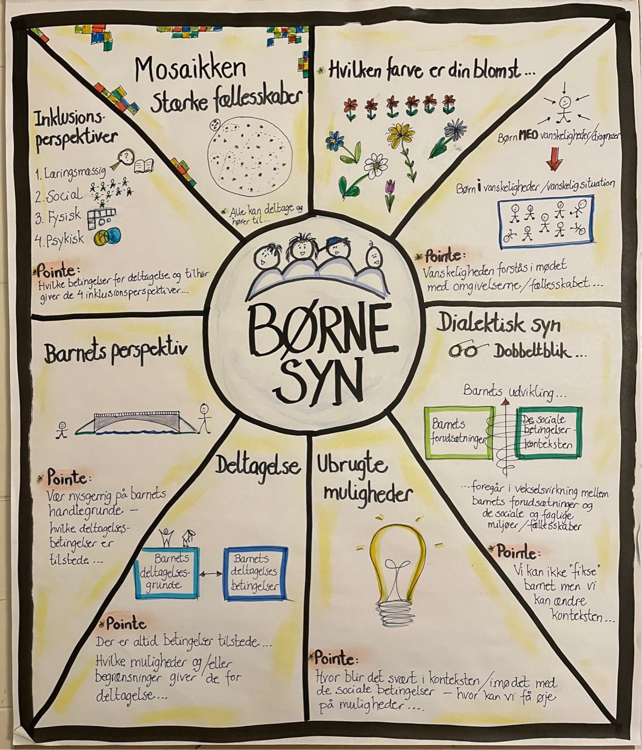 Mosaikken
Stærke fællesskaber
* Alle kan deltage og
hører til
* Hvilken farve er din blomst...
Børn MED vanskeligheder/diagnoser
Børn i vanskeligheder/vanskelig situation
* Pointe:
Vanskeligheden forstås i mødet
med omgivelserne/fællesskabet...
Inklusions-
perspektiver
1. Læringsmæssig
2. Social
3. Fysisk
4. Psykisk
* Pointe:
Hvilke betingelser for deltagelse og tilhør
giver de 4 inklusionsperspektiver...
BØRNE
SYN
Dialektisk syn
Dobbeltblik...
Barnets udvikling...
Barnets
forudsætninger
De sociale
betingelser
konteksten
...foregår i vekselsvirkning mellem
barnets forudsætninger og
de sociale og faglige
miljøer/fællesskaber
* Pointe:
Vi kan ikke "fikse"
barnet men vi
kan ændre
konteksten...
Barnets perspektiv
* Pointe:
Vær nysgerrig på barnets
handlegrunde -
hvilke deltagelses-
betingelser er
tilstede...
Deltagelse
Barnets
deltagelses-
grunde
Barnets
deltagelses
betingelser
* Pointe
Der er altid betingelser tilstede...
Hvilke muligheder og/eller
begrænsninger giver de for
deltagelse....
Ubrugte
muligheder
* Pointe:
Hvor blir det svært i konteksten/i mødet med
de sociale betingelser - hvor kan vi få øje
på muligheder....